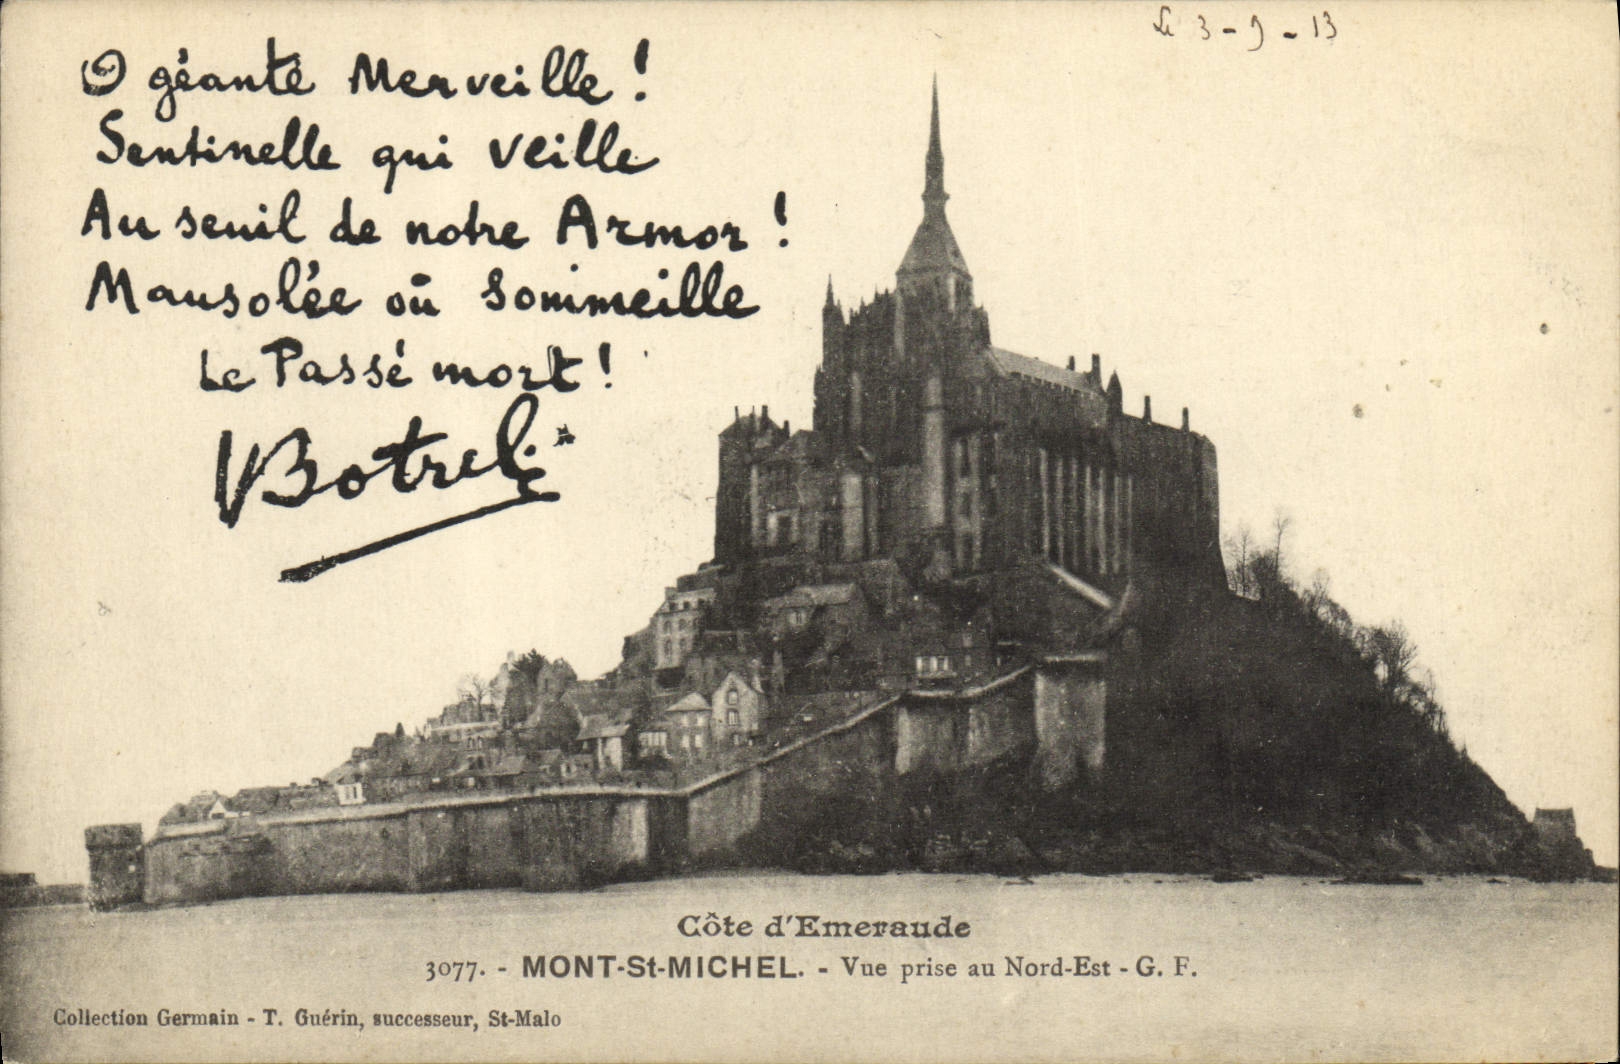 Le 3-9-13
O géante Merveille !
Sentinelle qui veille
Au seuil de notre Armor !
Mausolée où sommeille
Le Passé mort !
Botrel
Côte d'Emeraude
3077. - MONT-St-MICHEL. - Vue prise au Nord-Est - G. F.
Collection Germain - T. Guérin, successeur, St-Malo